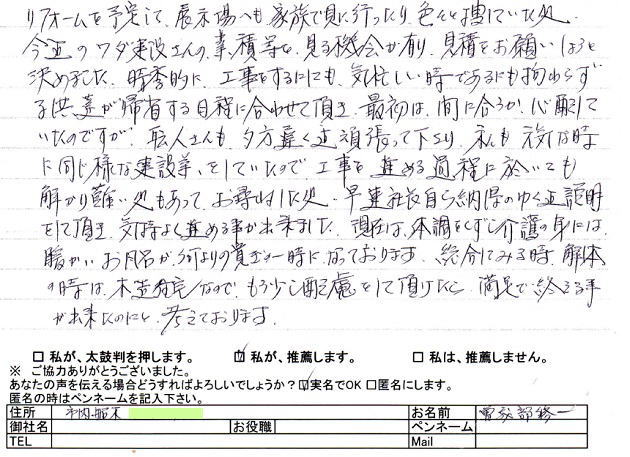 リフォームを予定して、展示場へも家族で見に行ったり、色々と捜していた処、
今迄のワダ建設さんの、業績等を見る機会が有り、見積をお願いしようと
決めました。時季的に、工事をするにも、気忙しい時であるにも拘わらず
子供達が帰省する日程に合わせて頂き、最初は、間に合うか、心配して
いたのですが、職人さんも、夕方遅く迄頑張って下さり、私も元気な時
に同じ様な建設業をしていたので、工事を進める過程に於いても
解かり難い処もあって、お尋ねした処、早速社長自ら納得のゆく迄説明
をして頂き、気持よく進める事が出来ました。現在は、体調をくずし介護の身には、
暖かいお風呂が何よりの一時になっております。総合してみる時、解体
の時は、木造住宅なので、もう少し配慮をして頂けたら、満足で終える事
が出来たのにと、考えております。
□ 私が、太鼓判を押します。 ☑ 私が、推薦します。 □ 私は、推薦しません。
※ ご協力ありがとうございました。
あなたの声を伝える場合どうすればよろしいでしょうか？ ☑実名でOK □匿名にします。
匿名の時はペンネームを記入下さい。
住所 お名前
御社名 お役職 ペンネーム
TEL Mail